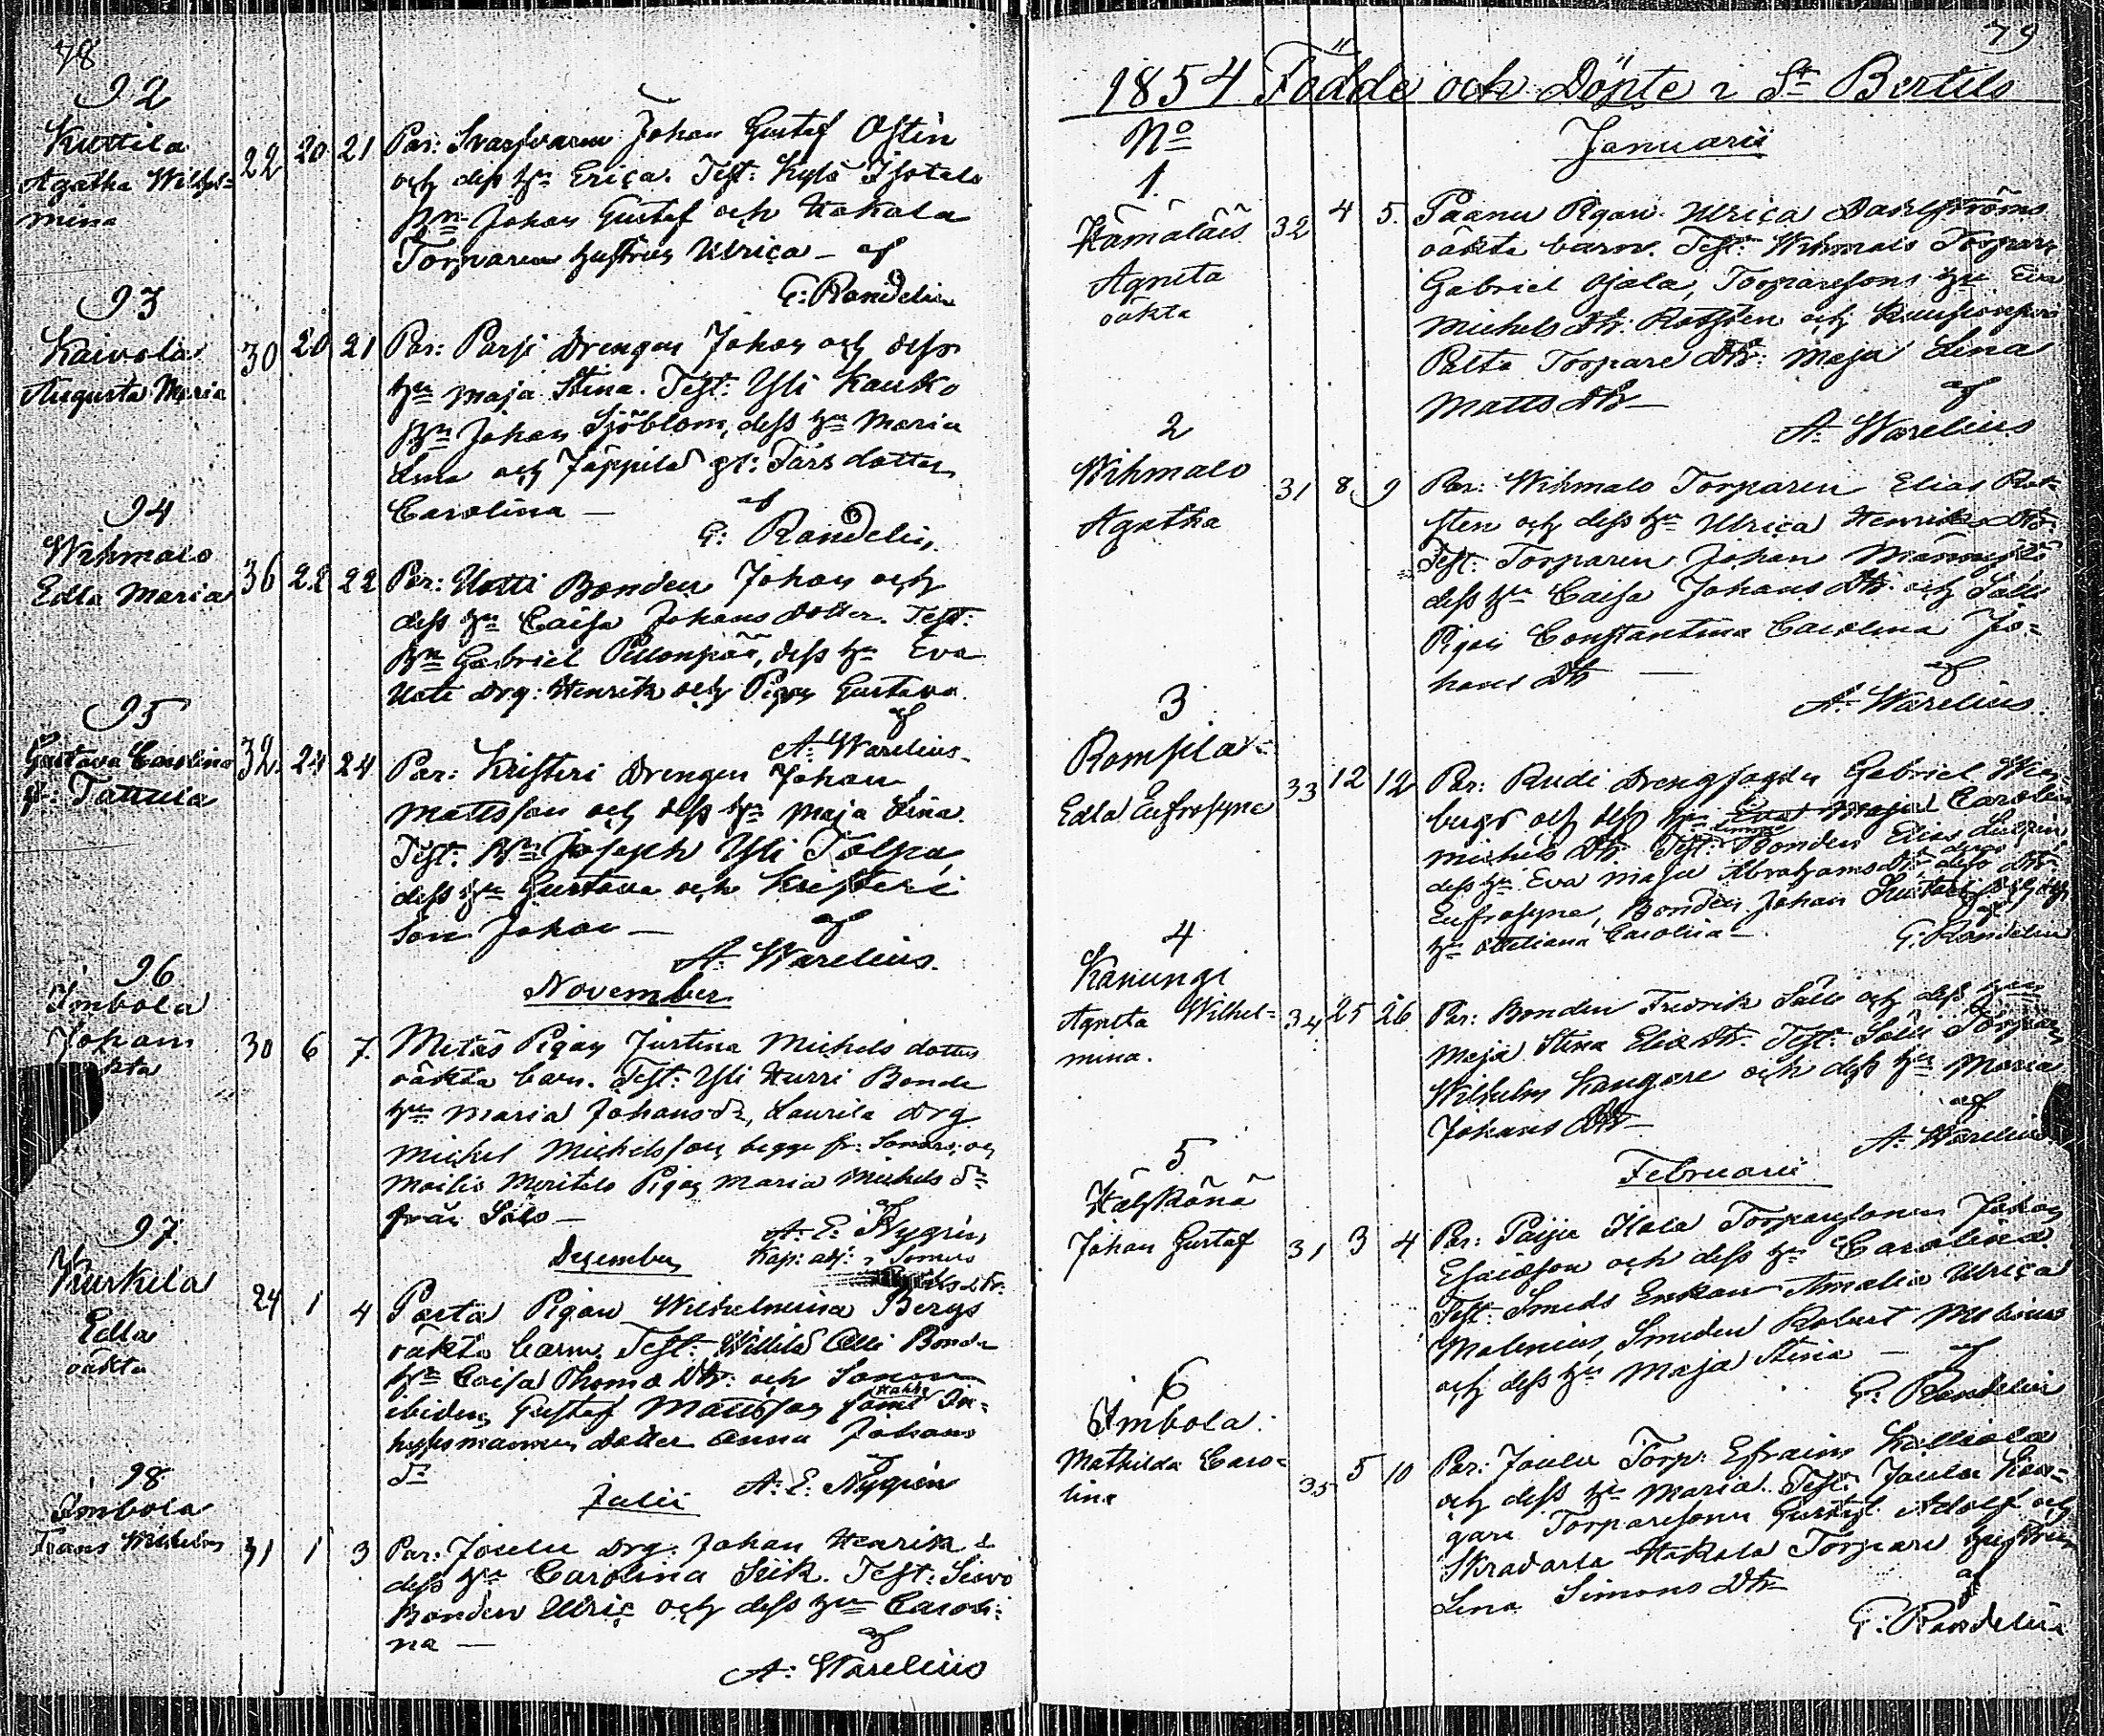 78
92
Kuttila
Agatha Wilhel=
mina
22 20 21
Par: Svarfvaren Johan Gustaf Ostin
och dess hu Erica. Test: Kylä Isotalo
Bn Johan Gustaf och Hakala
Torparen hustru Ulrica — af
G: Randelin
93
Kaivola
Augusta Maria
30 20 21
Par: Parsi Drengen Johan och dess
hu Maja Stina. Test: Yli Kauko
Bn Johan Sjöblom, dess hu Maria
Lena och Jäppilä gl: Fars dotter
Carolina — af
G: Randelin
94
Wihmalo
Edla Maria
36 22 22
Par: Uotti Bonden Johan och
dess hu Caisa Johans dotter. Test:
Bn Gabriel Pillonpää, dess hu Eva
Uoti Drg: Henrik och Pigan Gustava
af
A: Warelius
95
Gustava Carolina
Tattula
32 24 24
Par: Kristeri Drengen Johan
Mattsson och dess hu Maja Lina
Test: Bn Joseph Yli Tolpa,
dess hu Gustava och Kristeri
Son Johan — af
A: Warelius
November
96
Imbola
Johan
30 6 7
Metäs Pigan Justina Michels dotters
oäkta barn. Test: Yli Hurri Bonde
hu Maria Johansdr, Laurila Drg
Michel Michelsson begge fr: Somero, och
Mailis Meritalo Pigan Maria Michels dr
från Salo — af
A: E: Nygren
Kap: adj: i Somero
December
97
Kurkela
Edla
oäkta
24 1 4
Parta Pigan Wilhelmina Bergs
oäkta barn. Test: Willilä Alli Bonde
hu Caisa Thomæ Dtr: och Sonen
ibidem Gustaf Mattsson samt In=
hysesmannen dotter Anna Johans
dr af
A: E: Nygren
Julii
98
Imbola
Frans Wilhelm
31 1 3
Par: Joulu Drg: Johan Henrik &
dess hu Carolina Siik. Test: Sievo
Bonden Ulric och dess hu Caroli=
na — af
A: Warelius
79
1854 Födde och Döpte i St Bertils
No
Januarii
1.
Hämäläis
Agneta
oäkta
32 4 5.
Paanu Pigan Ulrica Dahlströms
oäkta barn. Test: Wihmalo Torpare
Gabriel Ojala, Torparesons hu Eva
Michels Dtr: Rotsten och
Pelto Torpare Dtr: Maja Lena
Matts Dtr — af
A: Warelius
2
Wihmalo
Agatha
31 8 9
Par: Wihmalo Torparen Elias Rot=
sten och dess hu Ulrica Henriks Dtr.
Test: Torparen Johan Männistö
dess hu Caisa Johans Dtr. och Salli
Pigan Constantina Carolina Jo=
hans Dtr — af
A: Warelius
3
Romsila
Edla Eufrosyne
33 12 12
Par: Rudi Drengfogden Gabriel
bergs och dess hu Maja Carolin
Michels Dtr. Test: Bonden Elias
dess hu Eva Maja Abrahams Dtr, dess Dtr
Eufrosyne, Bonden Johan
hu Ottiliana Carolina — af
G: Randelin
4
Kanungi
Agneta Wilhel=
mina.
34 25 26
Par: Bonden Fredrik Salli och dess hu
Maja Stina Elias Dtr. Test: Salli Torpare
Wilhelm Kangare och dess hu Maria
Johans Dtr — af
A: Warelius
Februarii
5
Hälfkönä
Johan Gustaf
31 3 4
Par: Paiju Isola Torparesonen Johan
Esaiasson och dess hu Carolina
Test: Smeds Enkan Amalia Ulrica
Malenius, Smeden Robert Malenius
och dess hu Maja Stina — af
G: Randelin
6
Imbola
Mathilda Caro=
lina
35 5 10
Par: Joulu Torp: Efraim Kalliola
och dess hu Maria. Test: Joulu Kan=
gare Torparesonen Gustaf Adolf och
Skradarla Hakala Torpare hustrun
Lena Simons Dtr — af
G: Randelin